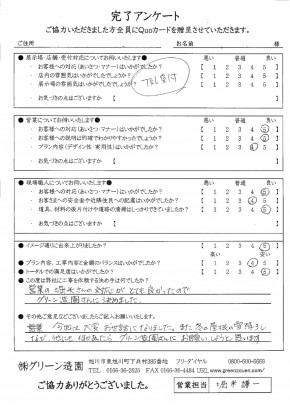 完了アンケート
ご協力いただきました方全員にQuoカードを贈呈させていただきます。
ご住所 お名前 様
●展示場・店舗・受付対応についてお伺いいたします● 悪い 普通 良い
・お客様への対応(あいさつ・マナー)はいかがでしたか? 【 1 2 3 4 5 】
・店内の雰囲気はいかがでしたでしょうか? 【 1 2 3 4 5 】
・展示場の雰囲気はいかがでしたか? 【 1 2 3 4 5 】
TEL受付
・お気づきの点はございますか 【 】
●営業についてお伺いいたします● 悪い 普通 良い
・お客様への対応(あいさつ・マナー)はいかがでしたか? 【 1 2 3 4 5 】
・お客様への説明は的確でわかりやすかったでしょうか? 【 1 2 3 4 5 】
・プラン内容(デザイン性・実用性)はいかがでしたか? 【 1 2 3 4 5 】
・お気づきの点はございますか 【 】
●現場職人についてお伺いいたします● 悪い 普通 良い
・お客様への対応(あいさつ・マナー)はいかがでしたか? 【 1 2 3 4 5 】
・お客さまへの安全面や近隣住民への配慮はいかがでしたか? 【 1 2 3 4 5 】
・道具、材料の後片付けや道路の清掃はしっかりできていましたか? 【 1 2 3 4 5 】
・お気づきの点はございますか 【 】
●イメージ通りに出来上がりましたか? 【 1 2 3 4 5 】
高い 安い
●プラン内容、工事内容など金額のバランスはいかがでしたか? 【 1 2 3 4 5 】
●トータルでの満足度はいかがでしたか? 【 1 2 3 4 5 】
●この度は弊社に工事を依頼する決め手は何でしたか?
営業の さんの対応がとても良かったので
グリーン造園さんに決めました。
●その他ご意見などございましたらご記入お願いいたします。
今回は大変お世話になりました。また
グリーン造園さんにお願いしようと思います
㈱グリーン造園 旭川市東旭川町下兵村385番地 フリーダイヤル 0800-600-6669
TEL 0166-36-2525 FAX 0166-36-4484 URL www.greenzouen.com/
ご協力ありがとうございました。 営業担当